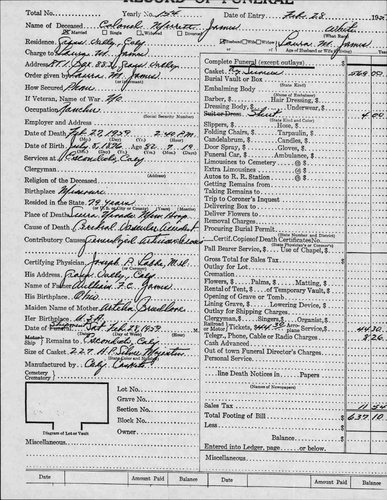 RECORD OF FUNERAL
Total No. Yearly No. 154 Date of Entry Feb. 28 19
Name of Deceased Colonel Merritt James White
Married Single Widowed Divorced (What Race)
Residence Grass Valley, Cal. Husband or Wife of Laura M. James
Age of Husband or Wife
Charge to Laura M. James
Rt 1 Box 883 Grass Valley
Order given by Laura M. James
How Secured
If Veteran, Name of War No
Occupation
Employer and Address
Date of Death Feb 27, 1959 2:40 P.M.
Date of Birth July 8, 1876 Age 82 7 19
Services at
Clergyman
Religion of the Deceased
Birthplace Missouri
Resided in the State 79 years
Place of Death Sierra Nevada Mem Hosp.
Cause of Death Cerebral Vascular Accident
Contributory Causes Generalized
Certifying Physician Joseph M.D.
His Address Grass Valley, Cal
Name of Father William F.C. James
His Birthplace Ohio
Maiden Name of Mother
Her Birthplace U.S.A.
Date of Sat. Feb 28, 1959
Ship Remains to
Size of Casket
Manufactured by
Cemetery
Crematory
Lot No.
Grave No.
Section No.
Block No.
Owner
Diagram of Lot or Vault
Miscellaneous
Complete Funeral (except outlays) $
Casket & Services 569.00
Burial Vault or Box
(State Kind)
Embalming Body
Barber, $ Hair Dressing, $
Dressing Body, $ Underwear, $
Suit or Dress Shirt 4.00
(State Kind and Color)
Slippers, $ Hose, $
Folding Chairs, $ Tarpaulin, $
Candelabrum, $ Candles, $
Door Spray, $ Gloves, $
Funeral Car, $ Ambulance, $
Limousines to Cemetery @ $
Extra Limousines @ $
Autos to R. R. Station @ $
Getting Remains from
Taking Remains to
Trip to Coroner's Inquest
Delivering Box to
Deliver Flowers to
Removal Charges
Procuring Burial Permit
(State Number and District)
Certif. Copies of Death Certificates No.
(State Physician's or Coroner's)
Pall Bearer Service, $ Use of Chapel, $
Gross Total for Sales Tax $
Outlay for Lot
Cremation
Flowers, $ Palms, $ Matting, $
Rental of Tent, $ of Temporary Vault, $
Opening of Grave or Tomb
Lining Grave, $ Lowering Device, $
Outlay for Shipping Charges
Clergyman, $ Singers, $ Organist, $
Railroad Tickets, $44.30 Aero-plane Service, $ 44.30
Telegr., Phone, Cable or Radio Charges 8.26
Cash Advanced
Out of town Funeral Director's Charges
Personal Service
line Death Notices in Papers
(Names of Newspapers)
Sales Tax 11.54
Total Footing of Bill $ 637.10
Less $
Balance $
Entered into Ledger, page or below.
Miscellaneous
Date Amount Paid Balance Date Amount Paid Balance